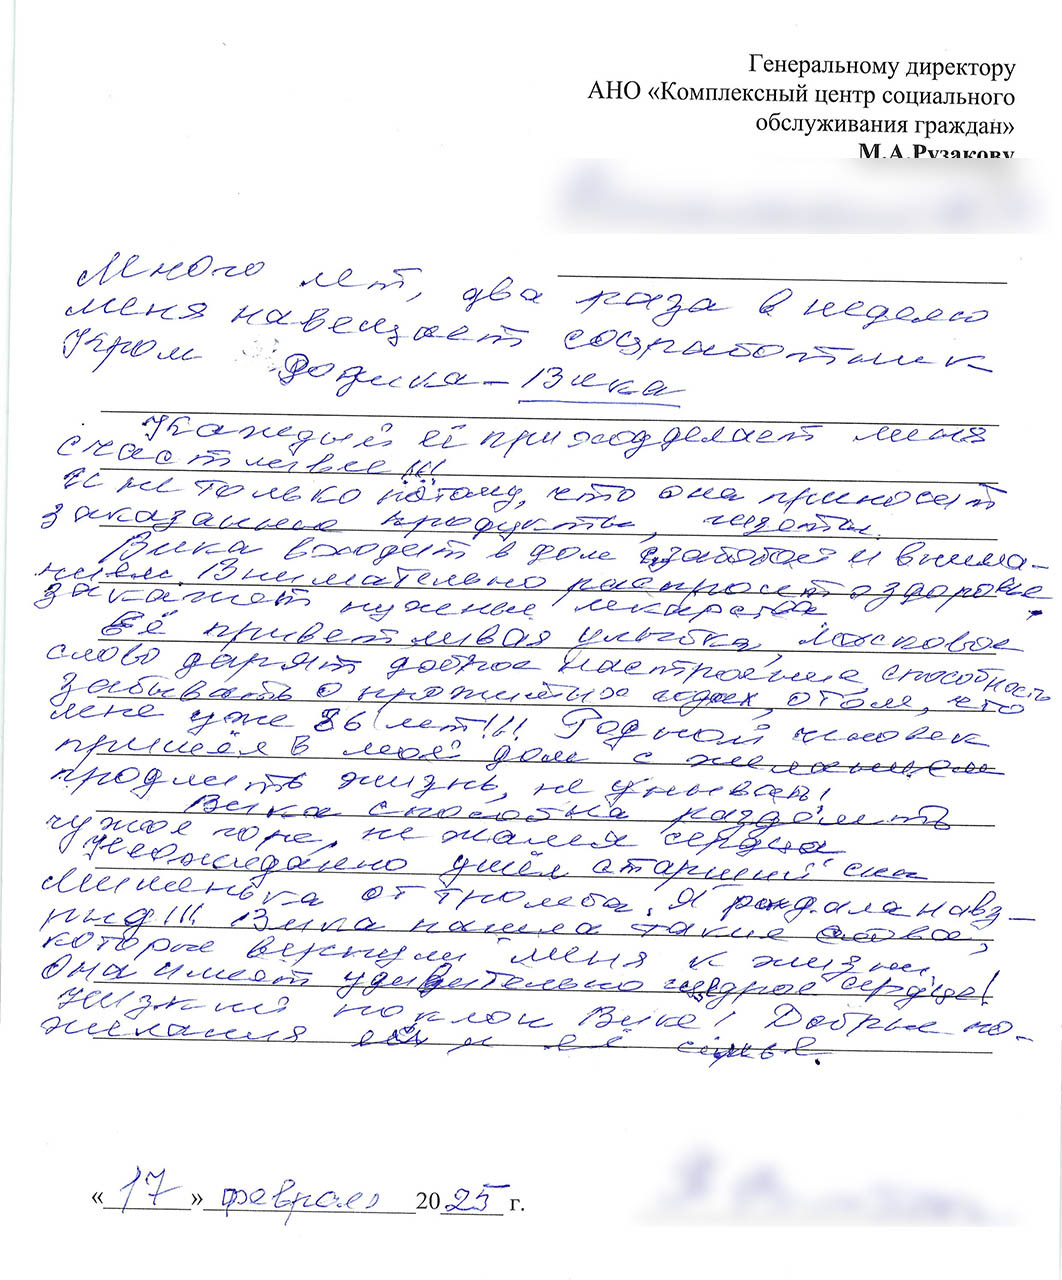 Генеральному директору
АНО «Комплексный центр социального
обслуживания граждан»
М.А.Рузакову
Много лет, два раза в неделю
меня навещает соцработник
Кром Родика – Вика
Каждый её приход делает меня
счастливее!!!
И не только потому, что она приносит
заказанные продукты, газеты.
Вика входит в дом с заботой и внима-
нием. Внимательно распросит о здоровье
закажет нужные лекарства
Её приветливая улыбка, ласковое
слово дарят доброе настроение способность
забывать о прожитых годах, о том, что
мне уже 86 лет!!! Родной человек
пришёл в мой дом с желанием
продлить жизнь, не унывать!
Вика способна разделить
чужое горе, не жалея сердца
Неожиданно ушёл старший сын
Мишенька от тромба. Я рыдала навз-
рыд!!! Вика нашла такие слова,
которые вернули меня к жизни.
Она имеет удивительно щедрое сердце!
Низкий поклон Вике! Добрые по-
желания ей и её семье.
«17» февраля 2025 г.